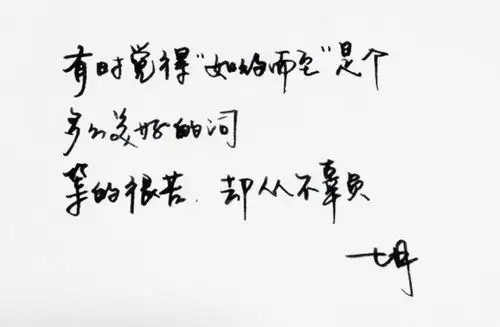 有时觉得“如约而至”是个
多么美好的词
等的很苦.却从不辜负